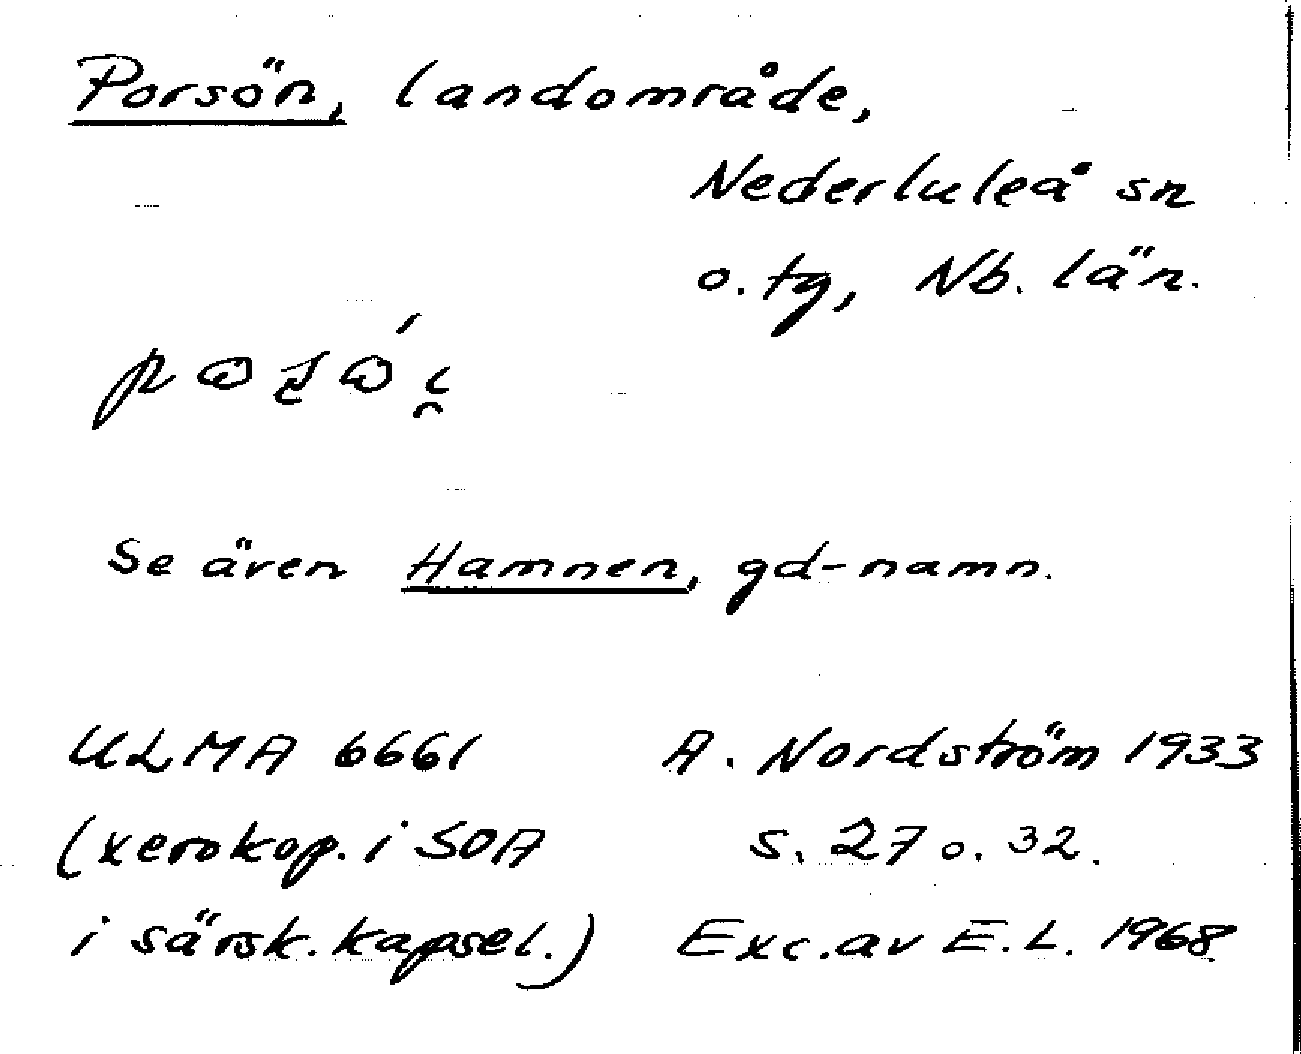 Porsön, landområde,
Nederluleå sn
o. tg, Nb. län.
Se även Hamnen, gd-namn.
ULMA 6661 A. Nordström 1933
(xerokop. i SOA s. 27 o. 32.
i särsk. kapsel.) Exc. av E. L. 1968